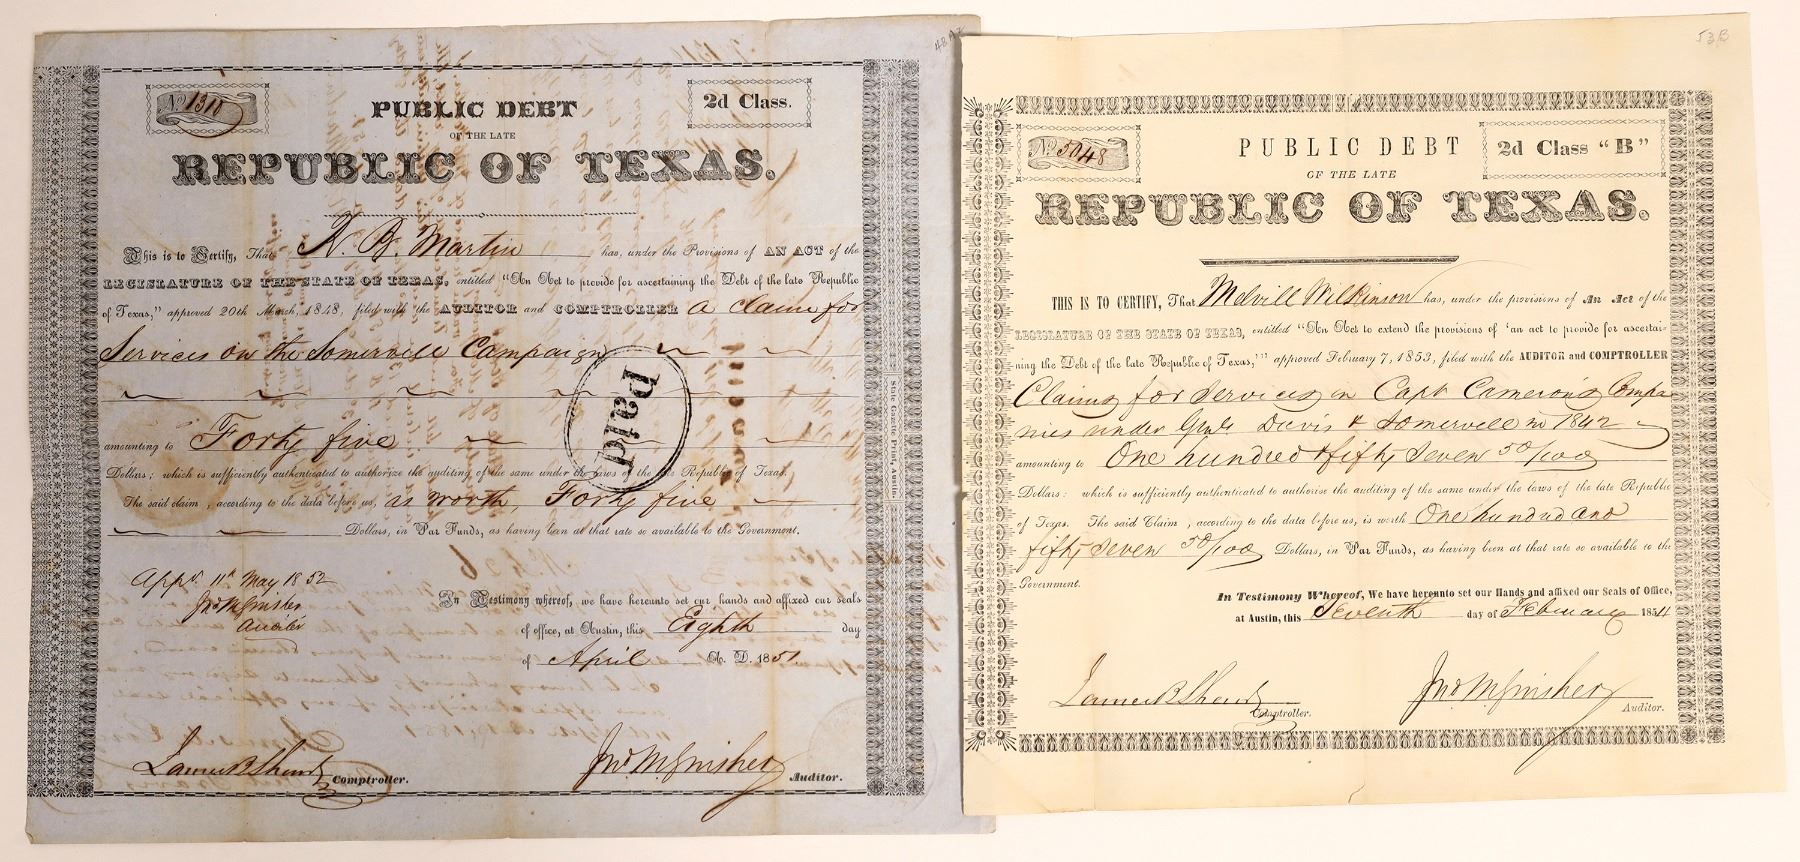 48 A2
No 1310
PUBLIC DEBT
2d Class.
OF THE LATE
REPUBLIC OF TEXAS.
This is to Certify, That K. B. Martin has, under the Provisions of AN ACT of the
LEGISLATURE OF THE STATE OF TEXAS, entitled "An Act to provide for ascertaining the Debt of the late Republic
of Texas," approved 20th March, 1848, filed with the AUDITOR and COMPTROLLER a claim for
Services on the Somervell Campaign
Paid
amounting to Forty five
Dollars; which is sufficiently authenticated to authorize the auditing of the same under the laws of the late Republic of Texas.
The said claim, according to the data before us, is worth, Forty five
Dollars, in Par Funds, as having been at that rate so available to the Government.
Appd. 11th May 1852
Jno M Swisher
Auditor
In Testimony whereof, we have hereunto set our hands and affixed our seals
of office, at Austin, this Eighth day
of April A. D. 1851.
James B Shaw Comptroller.
Jno M Swisher Auditor.
State Gazette Print, Austin.
53B
No 5048
PUBLIC DEBT
2d Class "B"
OF THE LATE
REPUBLIC OF TEXAS.
THIS IS TO CERTIFY, That Melvill Wilkinson has, under the provisions of An Act of the
LEGISLATURE OF THE STATE OF TEXAS, entitled "An Act to extend the provisions of 'an act to provide for ascertai-
ning the Debt of the late Republic of Texas,'" approved February 7, 1853, filed with the AUDITOR and COMPTROLLER
Claims for services in Capt Cameron's Compa
nies under Genls Davis & Somervell in 1842
amounting to One hundred & fifty seven 50/100
Dollars: which is sufficiently authenticated to authorise the auditing of the same under the laws of the late Republic
of Texas. The said Claim, according to the data before us, is worth One hundred and
fifty seven 50/100 Dollars, in Par Funds, as having been at that rate so available to the
Government.
In Testimony Whereof, We have hereunto set our Hands and affixed our Seals of Office,
at Austin, this Seventh day of February 1854
James B Shaw
Comptroller.
Jno M Swisher
Auditor.